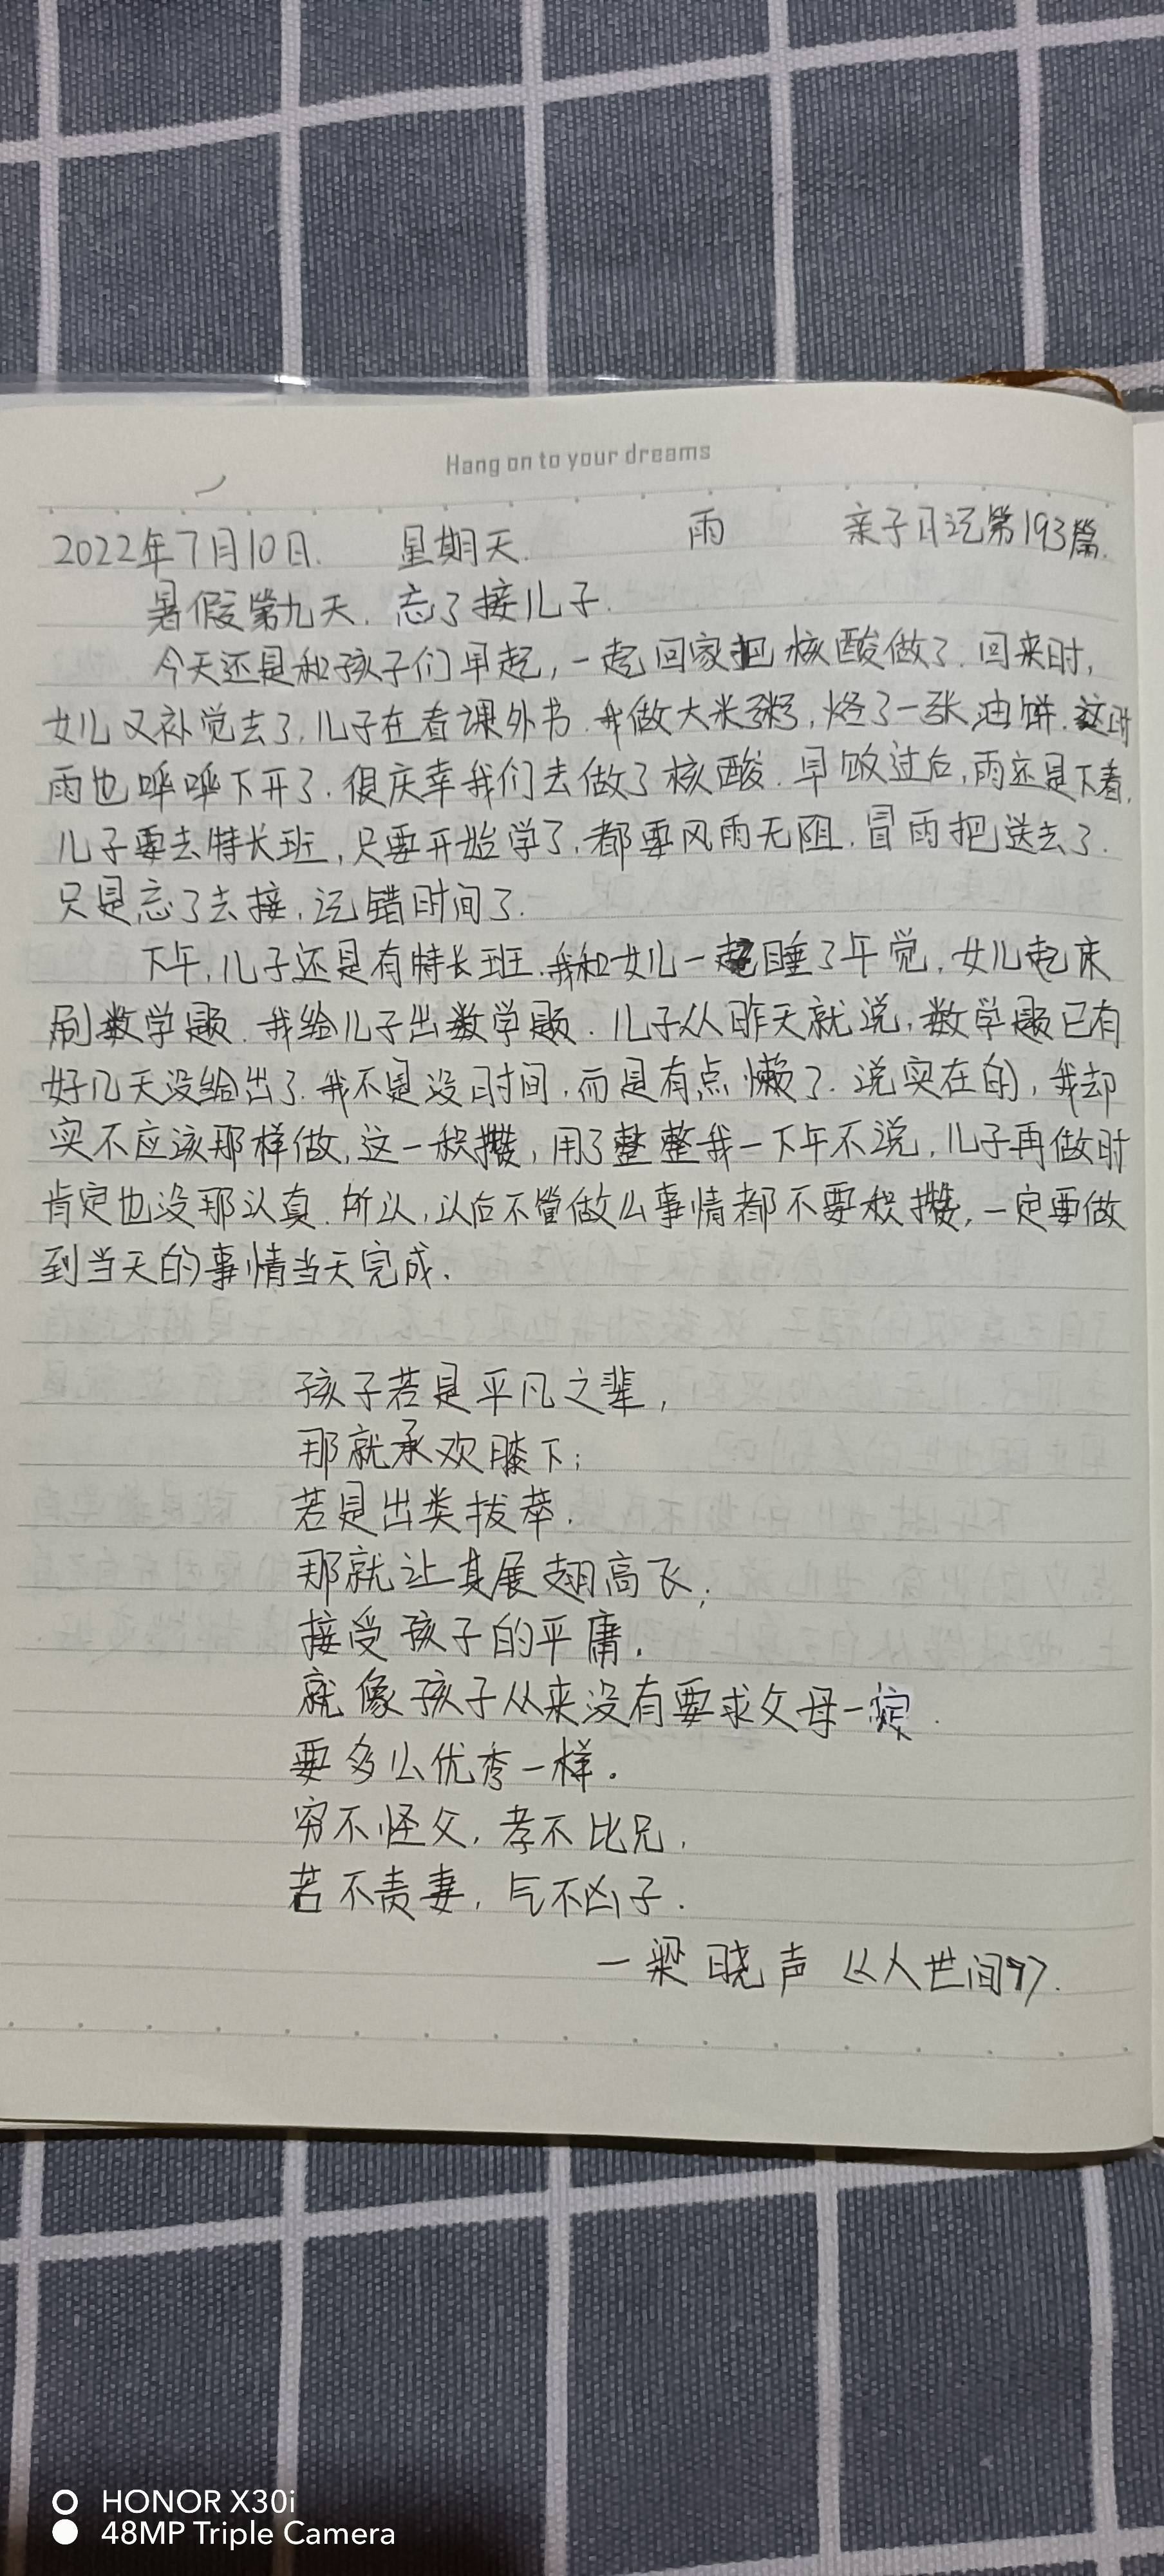 Hang on to your dreams
2022年7月10日. 星期天. 雨 亲子日记第193篇.
暑假第九天. 忘了接儿子.
今天还是和孩子们早起,一起回家把核酸做了. 回来时,
女儿又补觉去了, 儿子在看课外书. 我做大米粥, 烙了一张油饼. 这时
雨也呼呼下开了. 很庆幸我们去做了核酸. 早饭过后, 雨还是下着,
儿子要去特长班, 只要开始学了, 都要风雨无阻. 冒雨把送去了.
只是忘了去接, 记错时间了.
下午, 儿子还是有特长班. 我和女儿一起睡了午觉, 女儿起床
刷数学题. 我给儿子出数学题. 儿子从昨天就说, 数学题已有
好几天没给出了. 我不是没时间, 而是有点懒了. 说实在的, 我却
实不应该那样做, 这一积攒, 用了整整我一下午不说, 儿子再做时
肯定也没那认真. 所认, 以后不管做么事情都不要积攒, 一定要做
到当天的事情当天完成.
孩子若是平凡之辈,
那就承欢膝下;
若是出类拔萃.
那就让其展翅高飞;
接受孩子的平庸.
就像孩子从来没有要求父母一定.
要多么优秀一样.
穷不怪父, 孝不比兄.
苦不责妻, 气不凶子.
—梁晓声《人世间》.
HONOR X30i
48MP Triple Camera